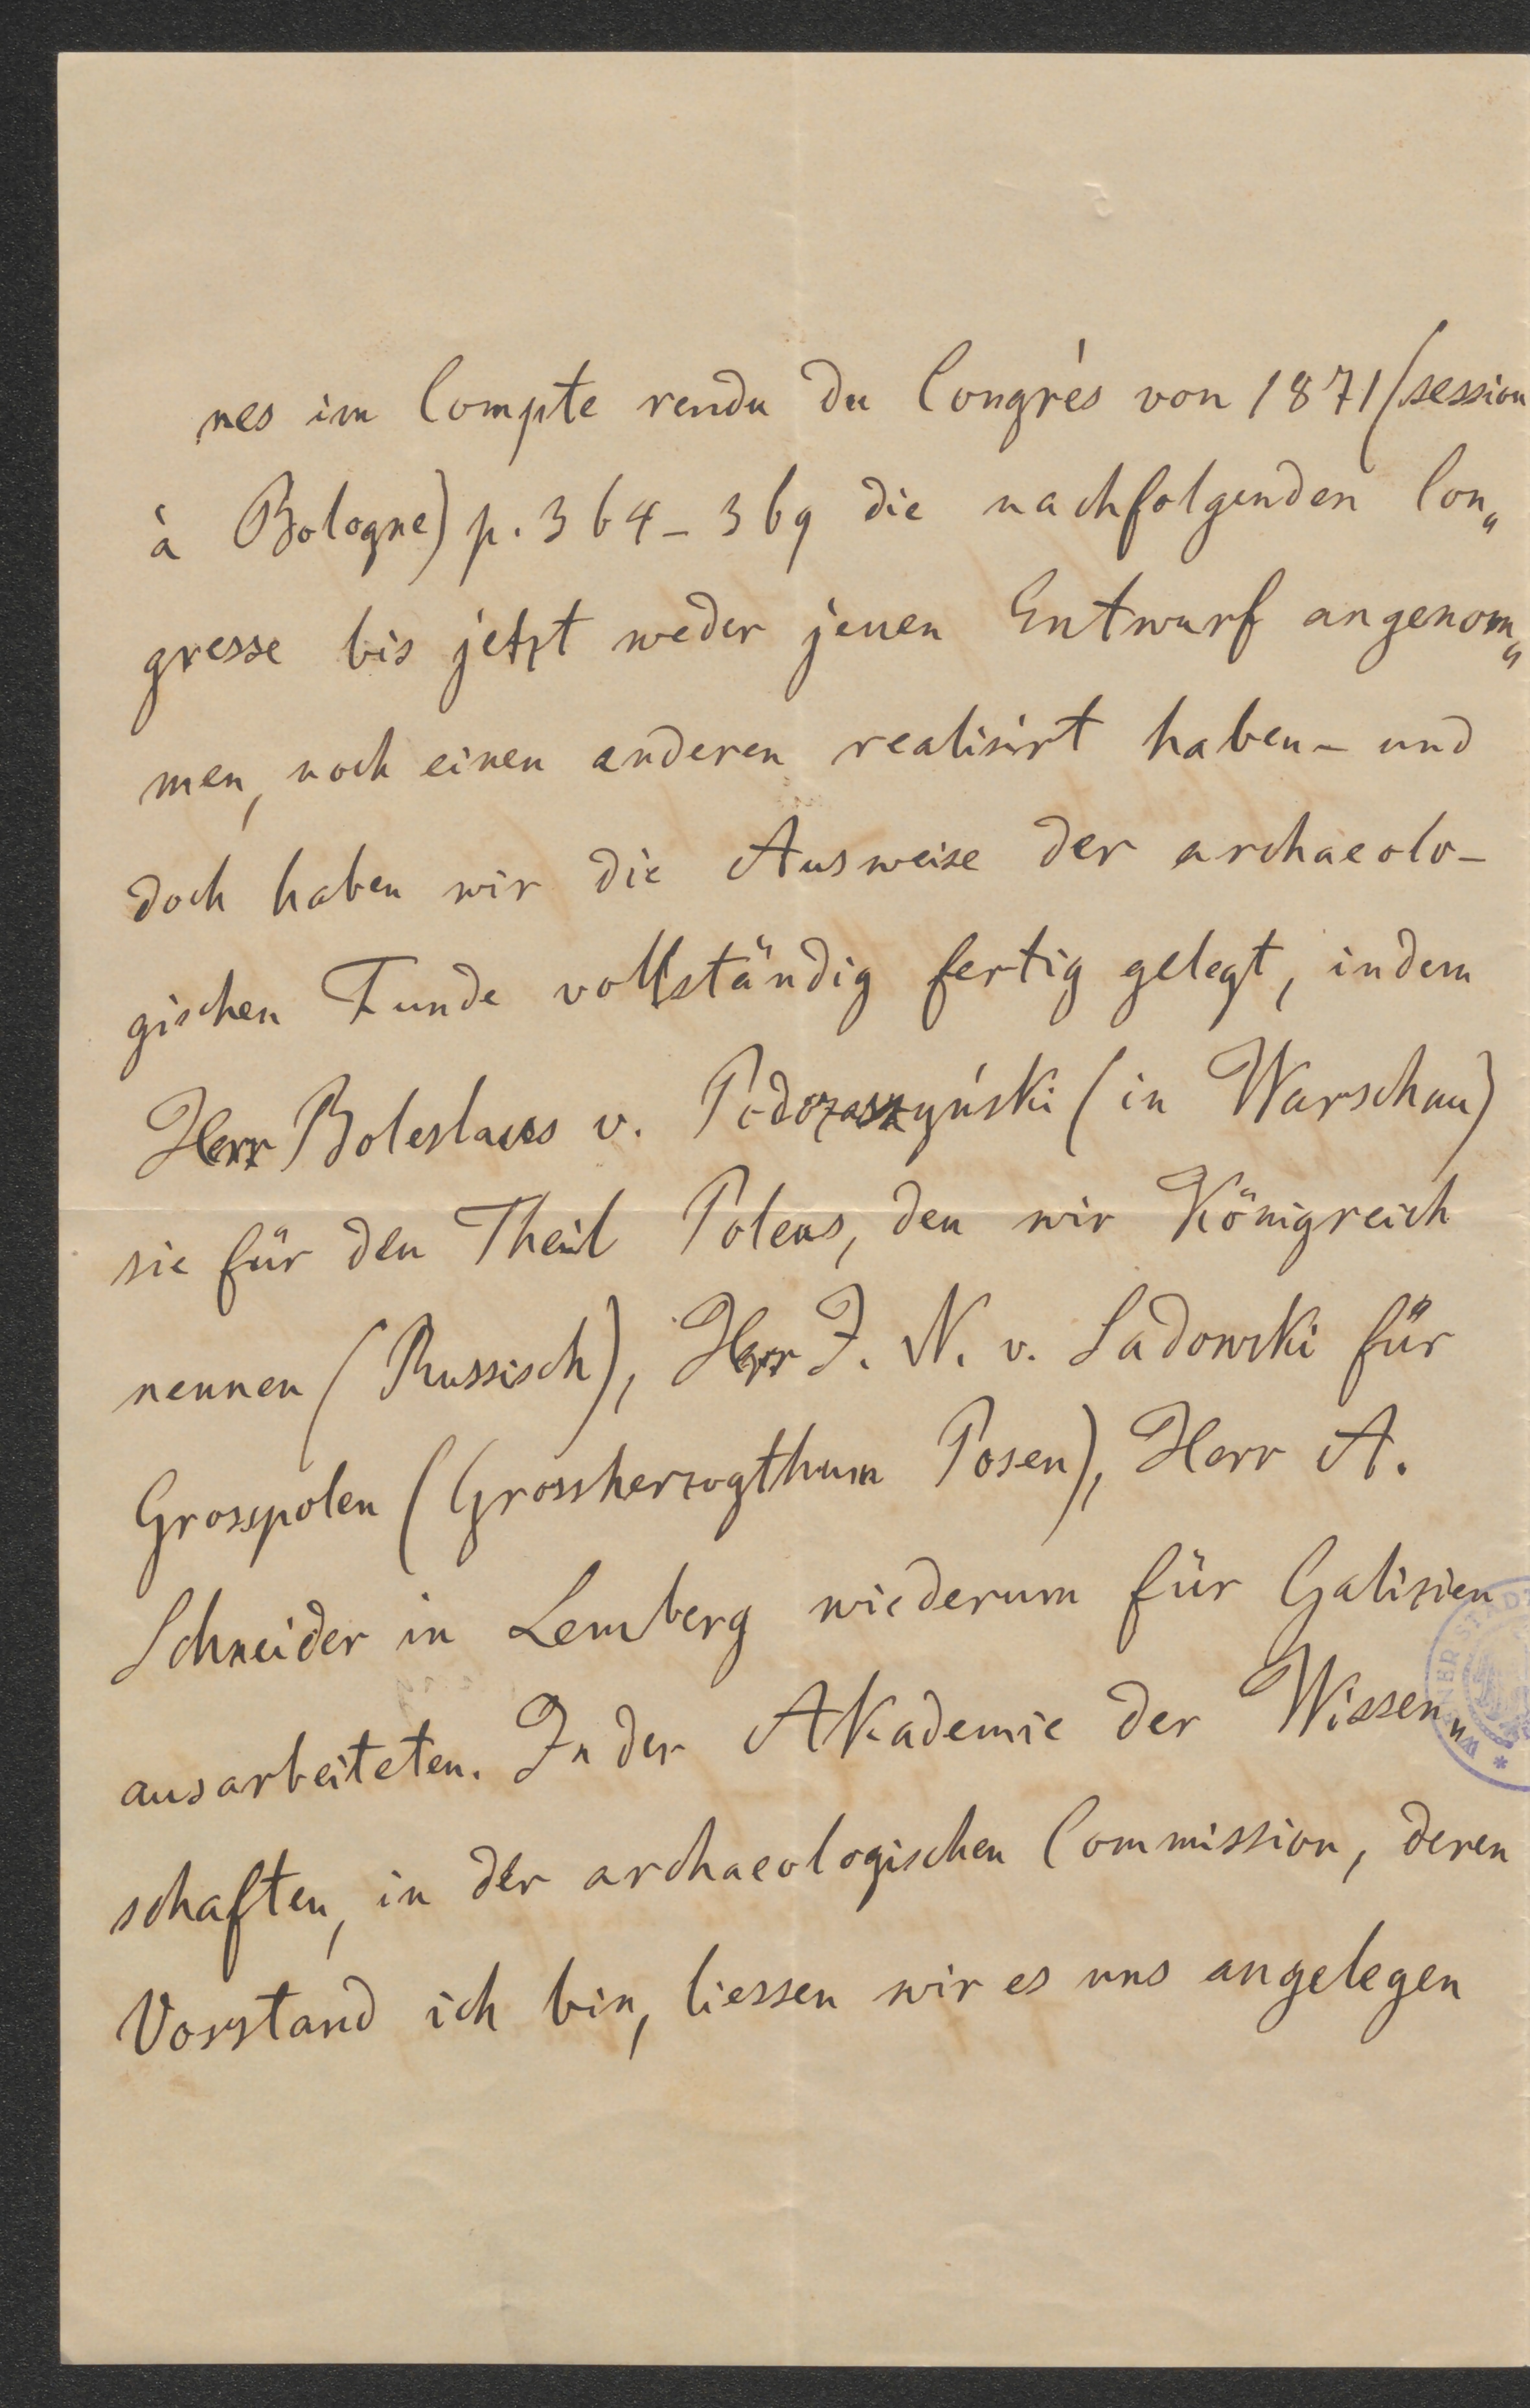 nes im Compte rendu du Congrès von 1871 (session
à Bologne) p. 364–369 die nachfolgenden Con„
gresse bis jetzt weder jenen Entwurf angenom„
men, noch einen anderen realisirt haben – und
doch haben wir die Ausweise der archaeolo-
gischen Funde vollständig fertig gelegt, indem
Herr Boleslaus v. Podczaszyński (in Warschau)
sie für den Theil Polens, den wir Königreich
nennen (Russisch), Herr J. N. v. Sadowski für
Grosspolen (Grossherzogthum Posen), Herr A.
Schneider in Lemberg wiederum für Galizien
ausarbeiteten. In der Akademie der Wissen„
schaften, in der archaeologischen Commission, deren
Vorstand ich bin, liessen wir es uns angelegen